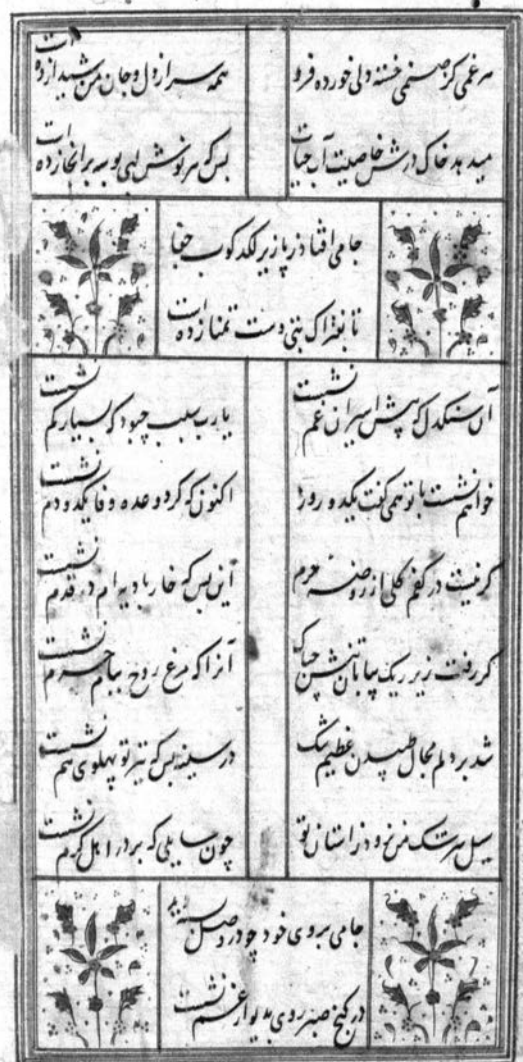 هر غمی کز صنمی خسته دلی خورده فرو
همه سر از دل و جان من شیدا زده است
میدهد خاک درش خاصیت آب حیات
بس که بر لب بوسه بر آنجا زده است
جامی افتاد ز پا زیر لگدکوب جفا
تا بفتراک بتی دست تمنا زده است
آن سنگدل که پیش اسیران غم نشست
یارب سبب چه بود که بسیار کم نشست
خواهم نشست با تو همی گفت یکدو روز
اکنون که کرد وعده وفا یکدو دم نشست
گر نیست در کفم گلی از روضه حرم
این بس که خار بادیه ام در قدم نشست
گر رفت زیر ریک بیابان تنش چه باک
آنرا که مرغ روح ببام حرم نشست
شد بر دلم مجال طپیدن عظیم تنک
در سینه بس که تیر تو پهلوی هم نشست
سیل سرشک من نرود ز آستان تو
چون سایلی که بر در اهل کرم نشست
جامی بروی خود چو در وصل بسته دید
در کنج صبر روی بدیوار غم نشست